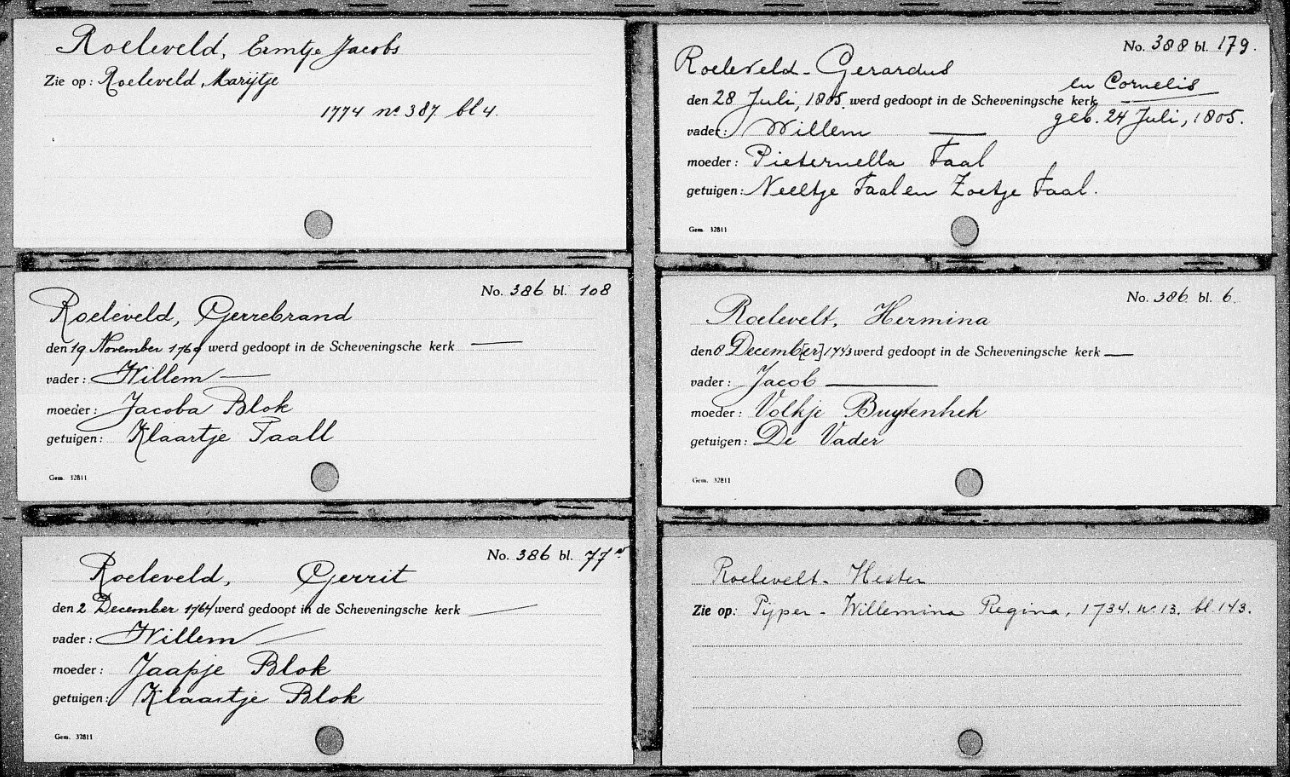 Roeleveld, Ermtje Jacobs
Zie op: Roeleveld, Marijtje
1774 no 387 bl 4.
No. 386 bl. 108
Roeleveld, Gerrebrand
den 19 November 1769 werd gedoopt in de Scheveningsche kerk —
vader: Willem —
moeder: Jacoba Blok
getuigen: Klaartje Taall
Gem. 32811
No. 386 bl. 77
Roeleveld, Gerrit
den 2 December 1764 werd gedoopt in de Scheveningsche kerk —
vader: Willem —
moeder: Jaapje Blok
getuigen: Klaartje Blok
Gem. 32811
No. 388 bl. 179.
Roeleveld - Gerardus
en Cornelis
den 28 Juli, 1805. werd gedoopt in de Scheveningsche kerk —
geb. 24 Juli, 1805.
vader: Willem —
moeder: Pieternella Taal
getuigen: Neeltje Taal en Zoetje Taal.
Gem. 32811
No. 386 bl. 6.
Roelevelt, Hermina
den 8 Decemb[er] 1743 werd gedoopt in de Scheveningsche kerk —
vader: Jacob —
moeder: Volkje Buytenhek
getuigen: De Vader
Gem. 32811
Roelevelt - Hester
Zie op: Pijper - Willemina Regina, 1734. no 13. bl 143.